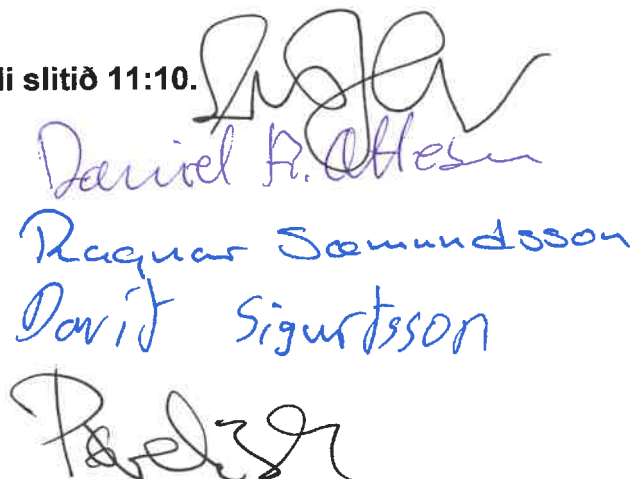 li slitið 11:10.
Daníel A. Ottesen
Ragnar Sæmundsson
Davíð Sigurðsson